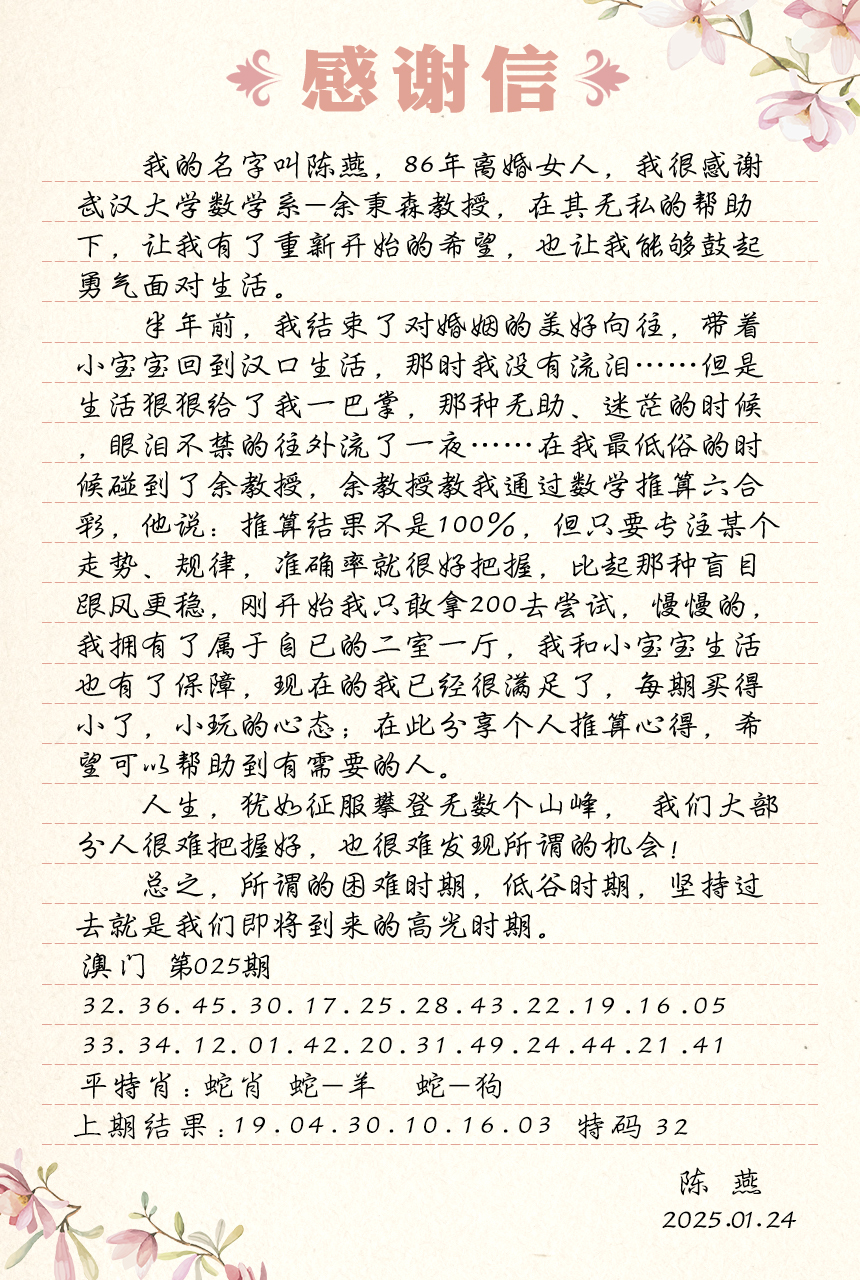 感谢信
我的名字叫陈燕，86年离婚女人，我很感谢
武汉大学数学系-余秉森教授，在其无私的帮助
下，让我有了重新开始的希望，也让我能够鼓起
勇气面对生活。
半年前，我结束了对婚姻的美好向往，带着
小宝宝回到汉口生活，那时我没有流泪……但是
生活狠狠给了我一巴掌，那种无助、迷茫的时候
，眼泪不禁的往外流了一夜……在我最低俗的时
候碰到了余教授，余教授教我通过数学推算六合
彩，他说：推算结果不是100%，但只要专注某个
走势、规律，准确率就很好把握，比起那种盲目
跟风更稳，刚开始我只敢拿200去尝试，慢慢的，
我拥有了属于自已的二室一厅，我和小宝宝生活
也有了保障，现在的我已经很满足了，每期买得
小了，小玩的心态；在此分享个人推算心得，希
望可以帮助到有需要的人。
人生，犹如征服攀登无数个山峰， 我们大部
分人很难把握好，也很难发现所谓的机会！
总之，所谓的困难时期，低谷时期，坚持过
去就是我们即将到来的高光时期。
澳门 第025期
32.36.45.30.17.25.28.43.22.19.16.05
33.34.12.01.42.20.31.49.24.44.21.41
平特肖：蛇肖 蛇-羊 蛇-狗
上期结果：19.04.30.10.16.03 特码 32
陈 燕
2025.01.24